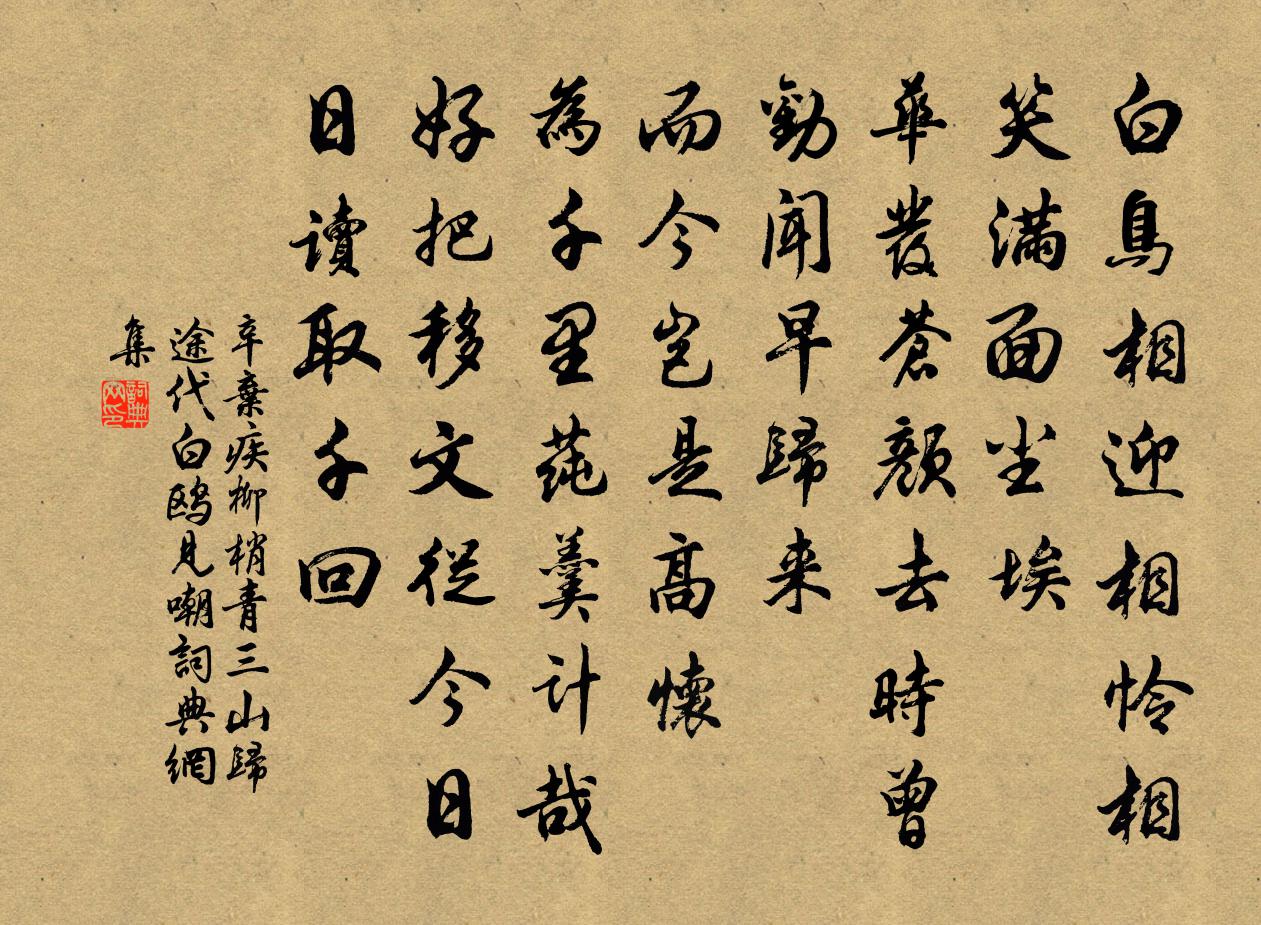 白鳥相迎相怜相
笑滿面尘埃
華發蒼顏去時曾
勸聞早歸來
而今豈是高懷
為千里蒓羹計哉
好把移文從今日
日讀取千回
辛棄疾柳梢青三山歸
途代白鷗見嘲詞典網
集
詞典
网印